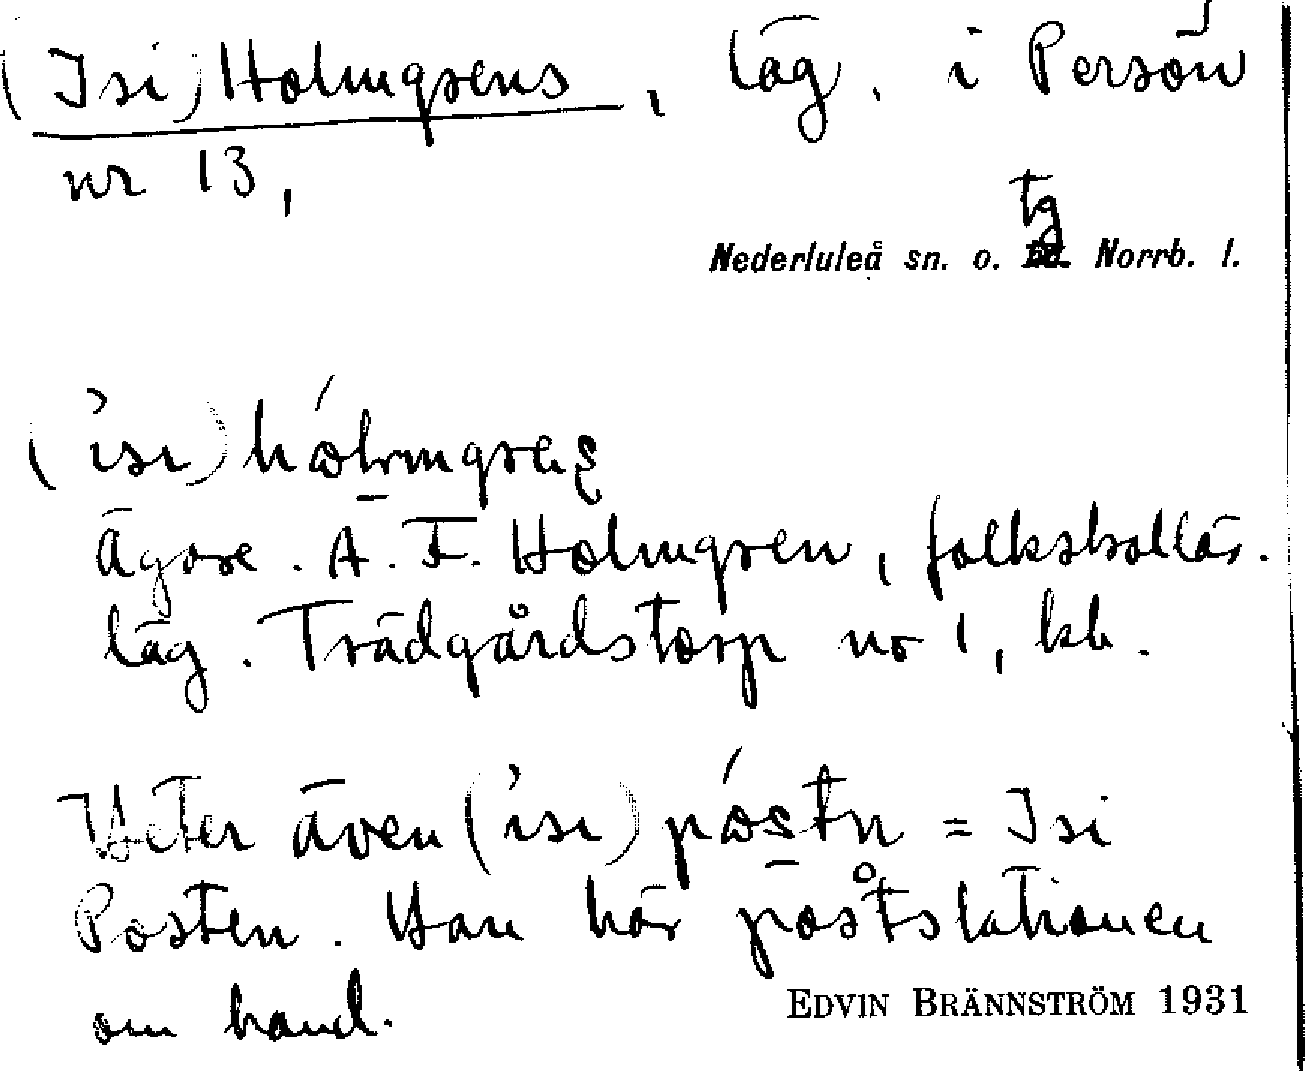 (Isi) Holmgrens, läg. i Persön
nr 13,
tg
Nederluleå sn. o. Norrb. l.
( isi) hólmgrens
Ägare. A. F. Holmgren, folkskollär.
läg. Trädgårdstorp nr 1, kb.
Heter även (isi) póstn = Isi
Posten. Han har poststationen
om hand.
EDVIN BRÄNNSTRÖM 1931